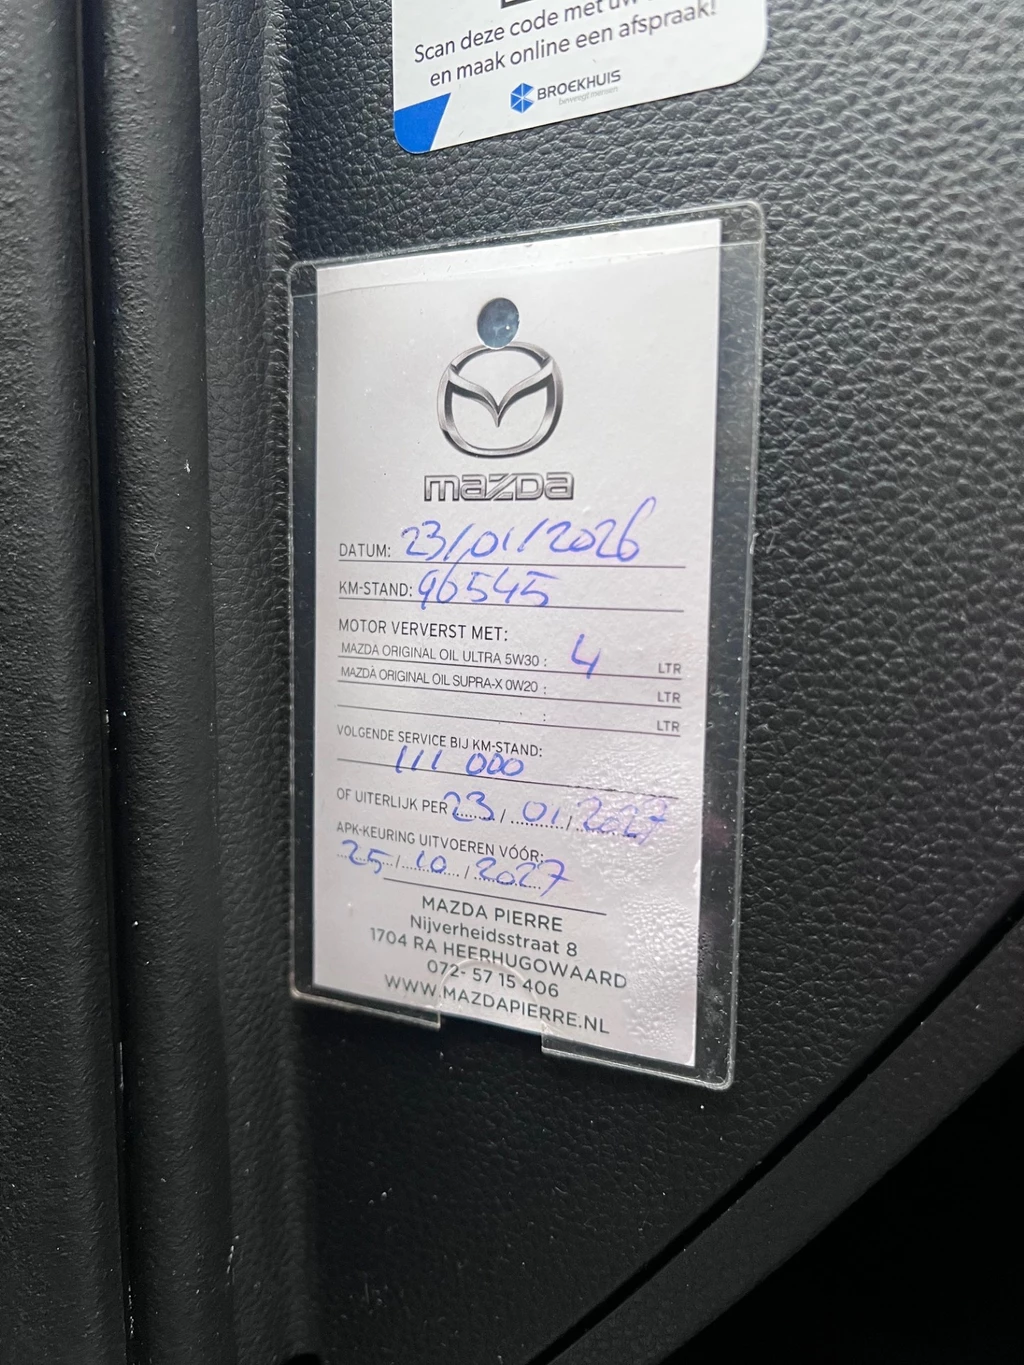 Scan deze code met uw
en maak online een afspraak!
BROEKHUIS
beweegt mensen
mazda
DATUM: 23/01/2026
KM-STAND: 96545
MOTOR VERVERST MET:
MAZDA ORIGINAL OIL ULTRA 5W30 : 4 LTR
MAZDA ORIGINAL OIL SUPRA-X 0W20 : LTR
: LTR
VOLGENDE SERVICE BIJ KM-STAND:
111 000
OF UITERLIJK PER 23/01/2027
APK-KEURING UITVOEREN VÓÓR:
25/10/2027
MAZDA PIERRE
Nijverheidsstraat 8
1704 RA HEERHUGOWAARD
072- 57 15 406
WWW.MAZDAPIERRE.NL